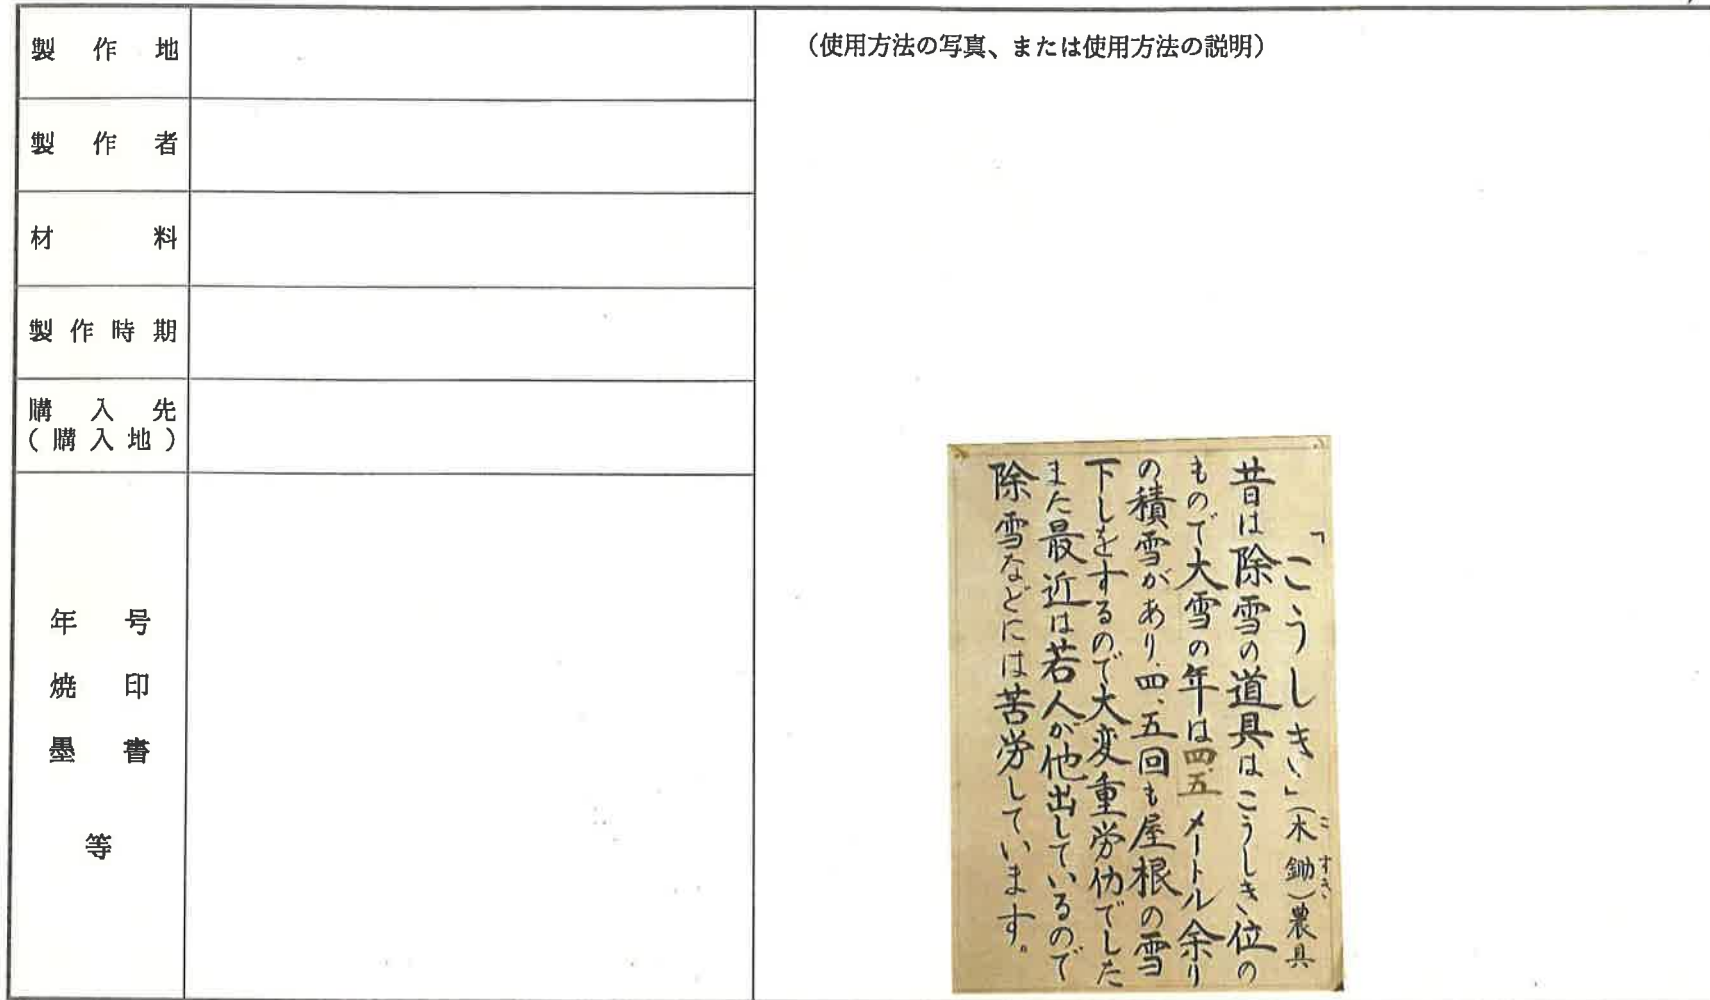 製作地
製作者
材料
製作時期
購入先
(購入地)
年号
焼印
墨書
等
(使用方法の写真、または使用方法の説明)
「こうしき」(木鋤)農具
こすき
昔は除雪の道具はこうしき位の
もので大雪の年は四、五メートル余り
の積雪があり、四、五回も屋根の雪
下しをするので大変重労仂でした
また最近は若人が他出しているので
除雪などには苦労しています。